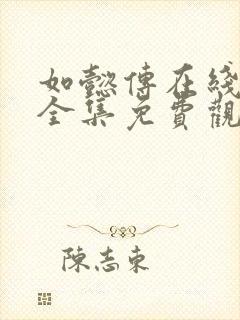 如懿傳在綫
全集免費觀
陳志東